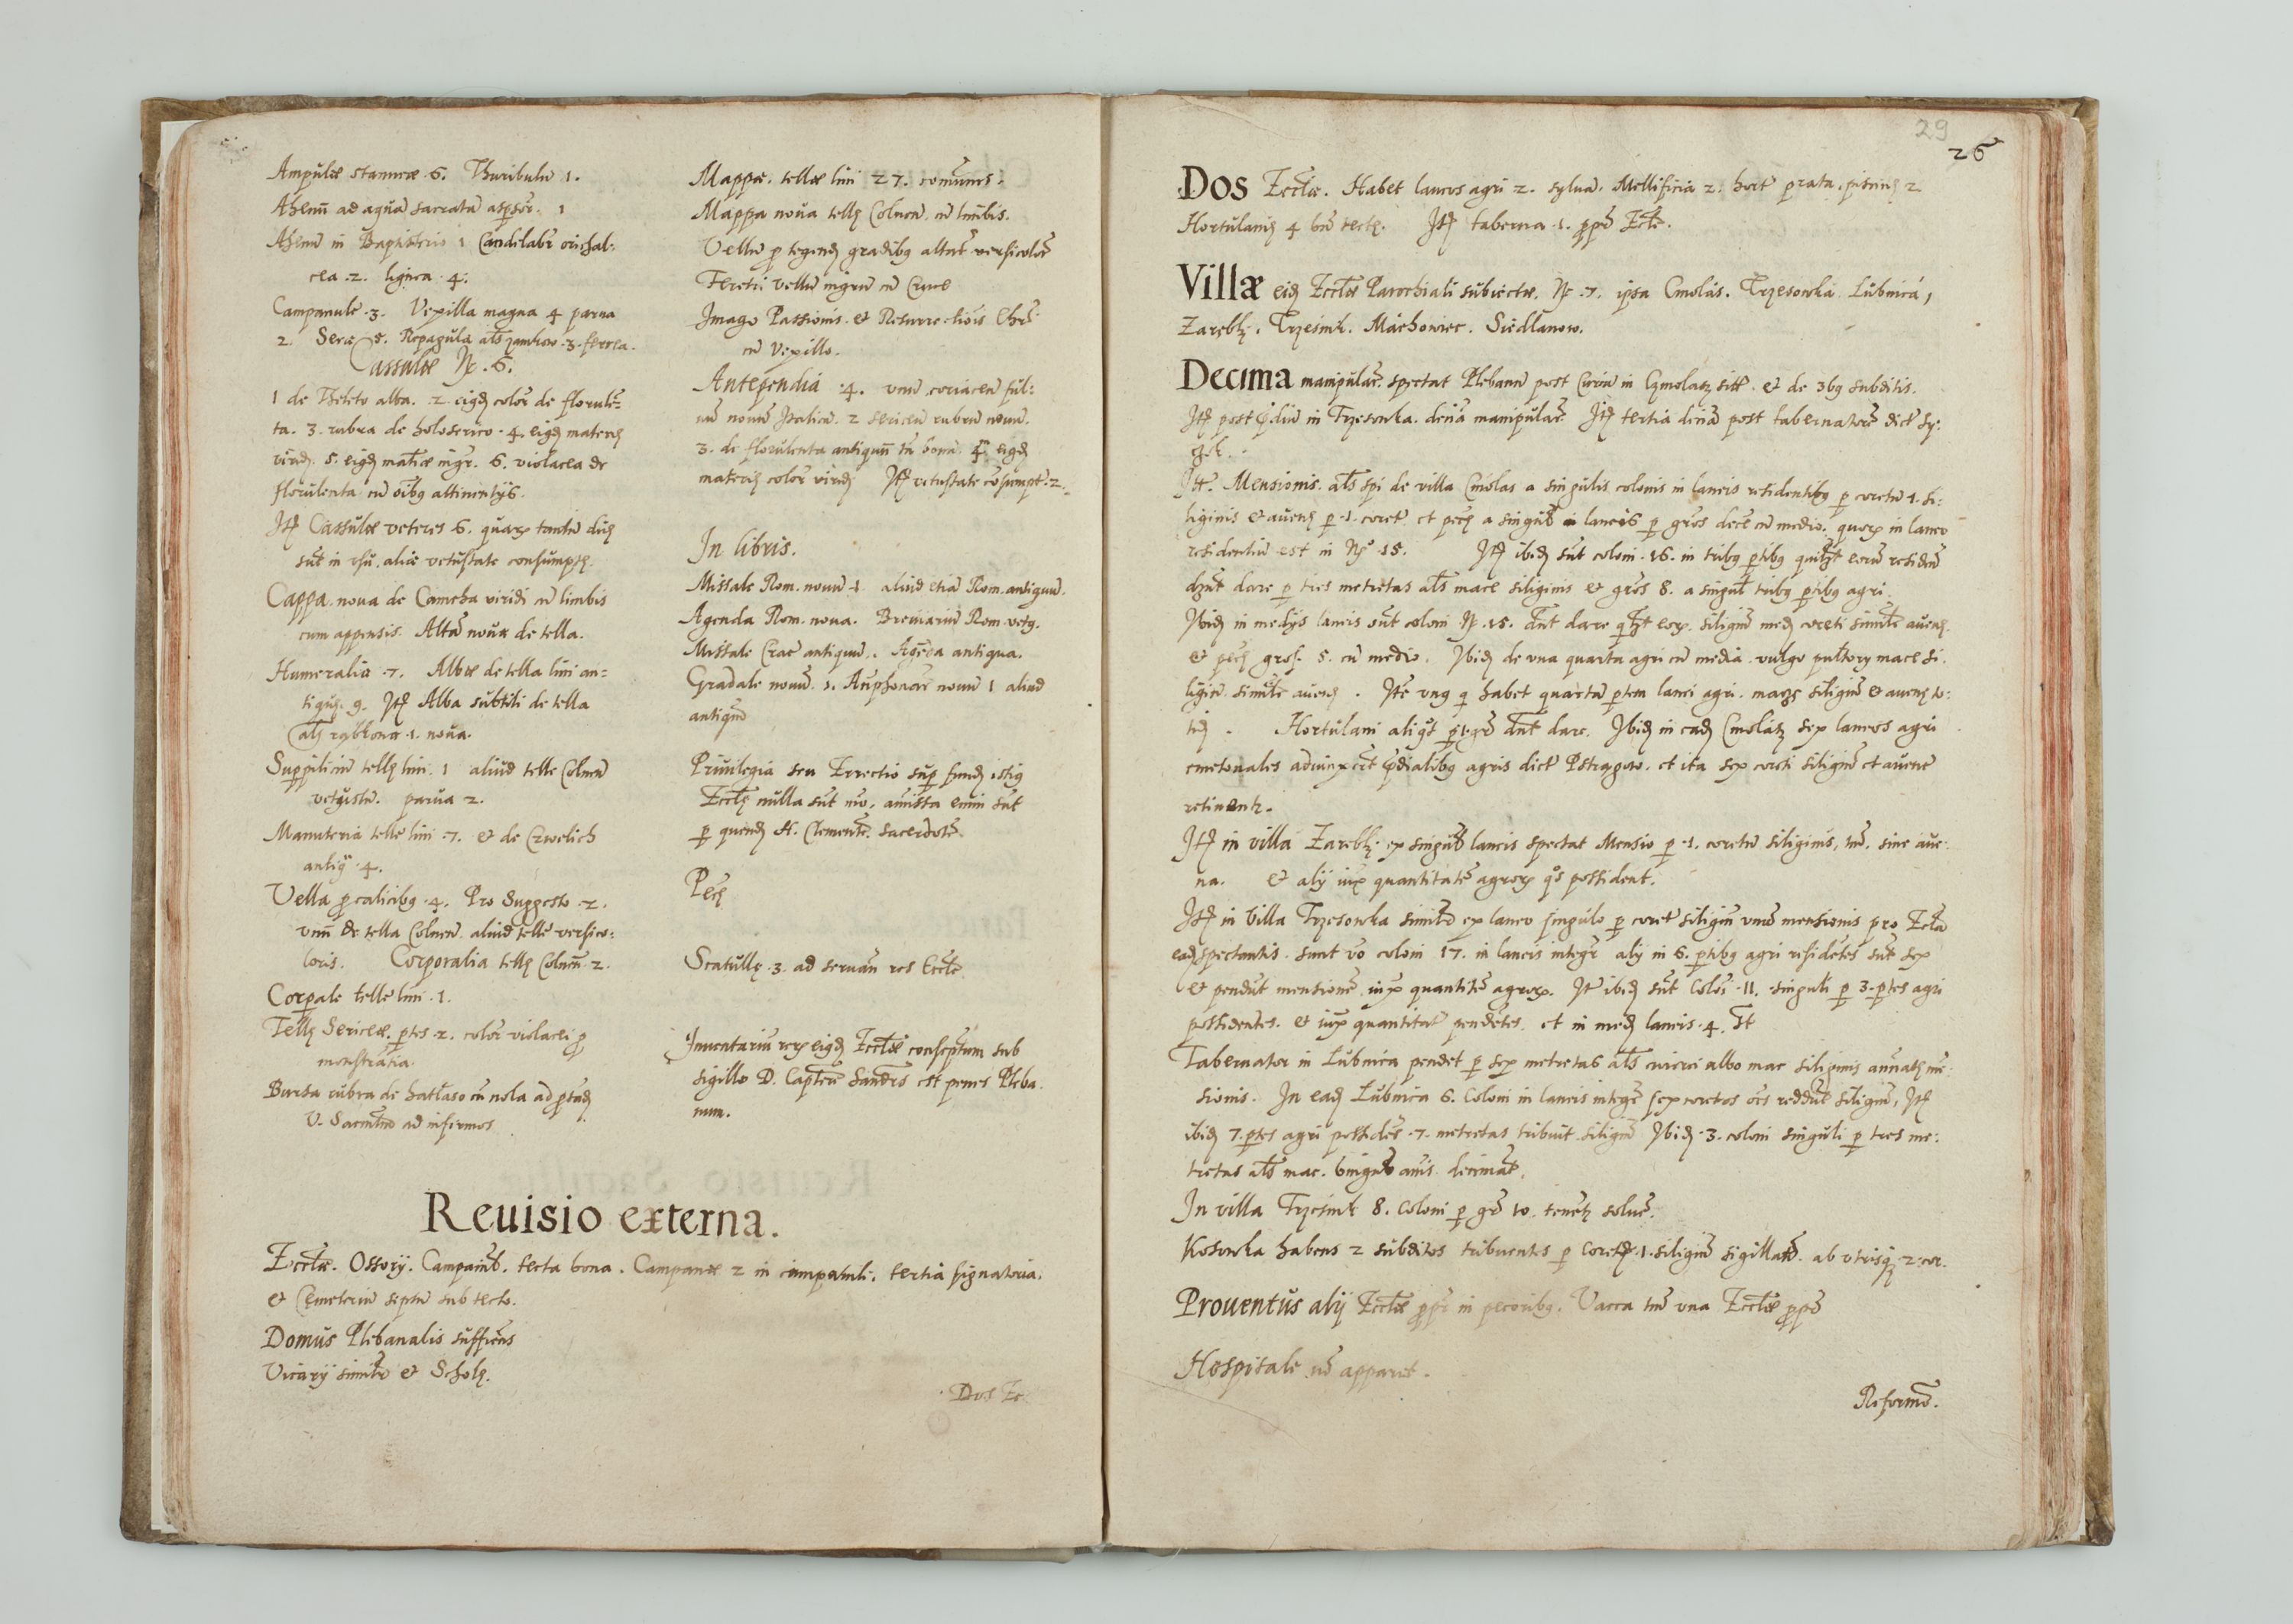 Ampulæ stanneæ 6. Thuribulū 1.
Ahenū ad aquā sacratā aspsor. 1
Ahenū in Baptisterio 1 Candelabr orichal:
cea .2. lignea .4.
Campanule .3. Vexilla magna 4 parua
2 Seræ 5. Repagula als zamkow .3. ferrea.
Cassulæ Nr. 6.
1 de Theleto alba. 2. eigd color de florulē=
ta. 3. rubra de holoserico .4. eigd materię
virid. 5. eigd matiæ nigr. 6. violacea de
florulenta cū oībg attinentijs.
Itę Cassulæ veteres 6. quarx tantū duę
sūt in vsu, aliæ vetustate consumptę.
Cappa noua de Camcha viridi cū limbis
cum appensis. Altera noua de tella.
Humeralia .7. Albæ de tella lini an=
tiquę. 9. Itę Alba subtili de tella
als rąbkowa .1. noua.
Suppiliciū tellę lini. 1 aliud telle Colnen
vetustū. parua 2.
Manuteria telle lini .7. & de Czwelich
antiq .4.
Vella p calicibg .4. Pro Suggesto .2.
vnū de tella Colnen. aliud telle versico:
loris. Corporalia tellę Colnen .2.
Corpale telle lini .1.
Tellę Sericeæ. ptes .2. color violacei p
monstrātia
Bursa rubra de hatłaso cū nola ad
V. Sacmtū ad infirmos
Mappæ. tellæ lini 27. comunes.
Mappa noua tellę Colnen. cū limbis.
Vellū p tegend gradibg altar versicolor
Feretri vellū nigrū cū Cruce
Imago Passionis. & Resurrectiōis Chri
cū Vexillo.
Antependia .4. vnū coriaceū ful:
uū nouū Italicū. 2 sericeū rubrū nouū.
3. de florulenta antiquū tn bonū. 4. eigd
materię color viridi Itę vetustate cōsumpt. 2.
In libris.
Missale Rom. nouū .1 aliud etiā Rom. antiquū.
Agenda Rom. noua. Breuiariū Rom. vetg.
Missale Crac antiquū. Agēda antiqua.
Graduale nouū .1. Anphonar nouū 1 aliud
antiquū
Priuilegia seu Errectio sup fundi istig
Ecctę nulla sūt nūc. amissa enim sūt
p quendā H. Clementē. sacerdotē.
Pecę
Scatullę .3. ad seruan res Eccte
Inuentariū rerx eigd Ecctæ conseptum sub
sigillo D. Captur Sandrs est penes Pleba.
num.
Reuisio externa.
Ecctæ. Ossorij. Campainl. tecta bona. Campanæ 2 in campanili. tertia signatoria.
& Cęmeteriū septū sub tecto.
Domus Plebanalis sufficiens
Vicarij similr & Scholę.
Dos Ec.
29
26
Dos Ecctæ. Habet laneos agri 2. syluā. Mellificia 2. hort prata. piscinę 2
Hortulanię 4 Itę taberna .1. ppe Ecte.
Villæ eid Ecctæ Parochiali subiectæ. Nr .7. ipsa Cmolas. Trzesowka. Lubnica,
Zarebky. Trzesnik. Machowiec. Siedlanow.
Decima manipular. spectat Plebanū post Curiā in Czmolasz & de 3bg subditis.
Itę post pdiū in Trzesowka. decia manipular. Itę tertia decia post tabernatorē dict Sy:

It. Mensionis. als spi de villa Cmolas a singulis colonis in laneis residentibg p coretū 1. si:
liginis & auenę p .1. coret. et pecę a singul laneis p gros decē cū medio. quorx in laneo
residentiū est in Nro .15. Itę ibid sūt coloni .16. in tribg ptibg eorū residen
dare p tres metretas als mace siliginis & gros 8. a singul tribg ptibg agri.
Ibid in medijs laneis sūt coloni Nr .15. dare eorx. siligin med coreti similr auenę.
& pecę gros. 5. cū medio. Ibid de vna quarta agri cū media. vulgo pułtory mace si:
ligin similr auenę. Itē vng q habet quartā ptem lanei agri. siligin & auenę to:
tid. Hortulani aliqt p 1 gr dare. Ibid in ead Cmolasz sex laneos agri
cmetonales adiunxert pdialibg agris dict Pstragowo. et ita sex coreti siligin et auene
retinentr.
Itę in villa Zarebky ex singul laneis spectat Mensio p .1. coretū siliginis, tm. sine aue:
na. & alij iux quantitatē agrorx qs possident.
Itę in villa Trzesowka similr ex laneo singulo p coret siligin vnū mensionis pro Ecta
ead spectantis. sunt vo coloni 17. in laneis integr alij in 6. ptibg agri residētes sūt sex
& pendūt mensionē iux quantitē agrorx. It ibid sūt Colon .11. singuli p 3. ptes agri
possidentes. & iux quantitat pendētes. et in med laneis .4.
Tabernator in Lubnica pendet p sex metretas als cwierci albo mac siliginis annatę mē:
sionis. In ead Lubnica 6. Coloni in laneis integr sex coretos oēs reddūt siligin, Itę
ibid 7. ptes agri possidēs .7. metretas tribuit siligin Ibid .3. coloni singuli p tres me:
tretas als mac. singul anis decimāt.
In villa Trzesnik 8. Coloni p gr 10. tenētr soluē.
Kosowka habens 2 subditos tribuentes p Coretū .1. siligin sigillatī. ab vtrisq 2. cor.
Prouentus alij Ecctæ ppr in pecoribg. Vacca tm vna Ecctæ ppr
Hospitale nō apparet.
Reformō.